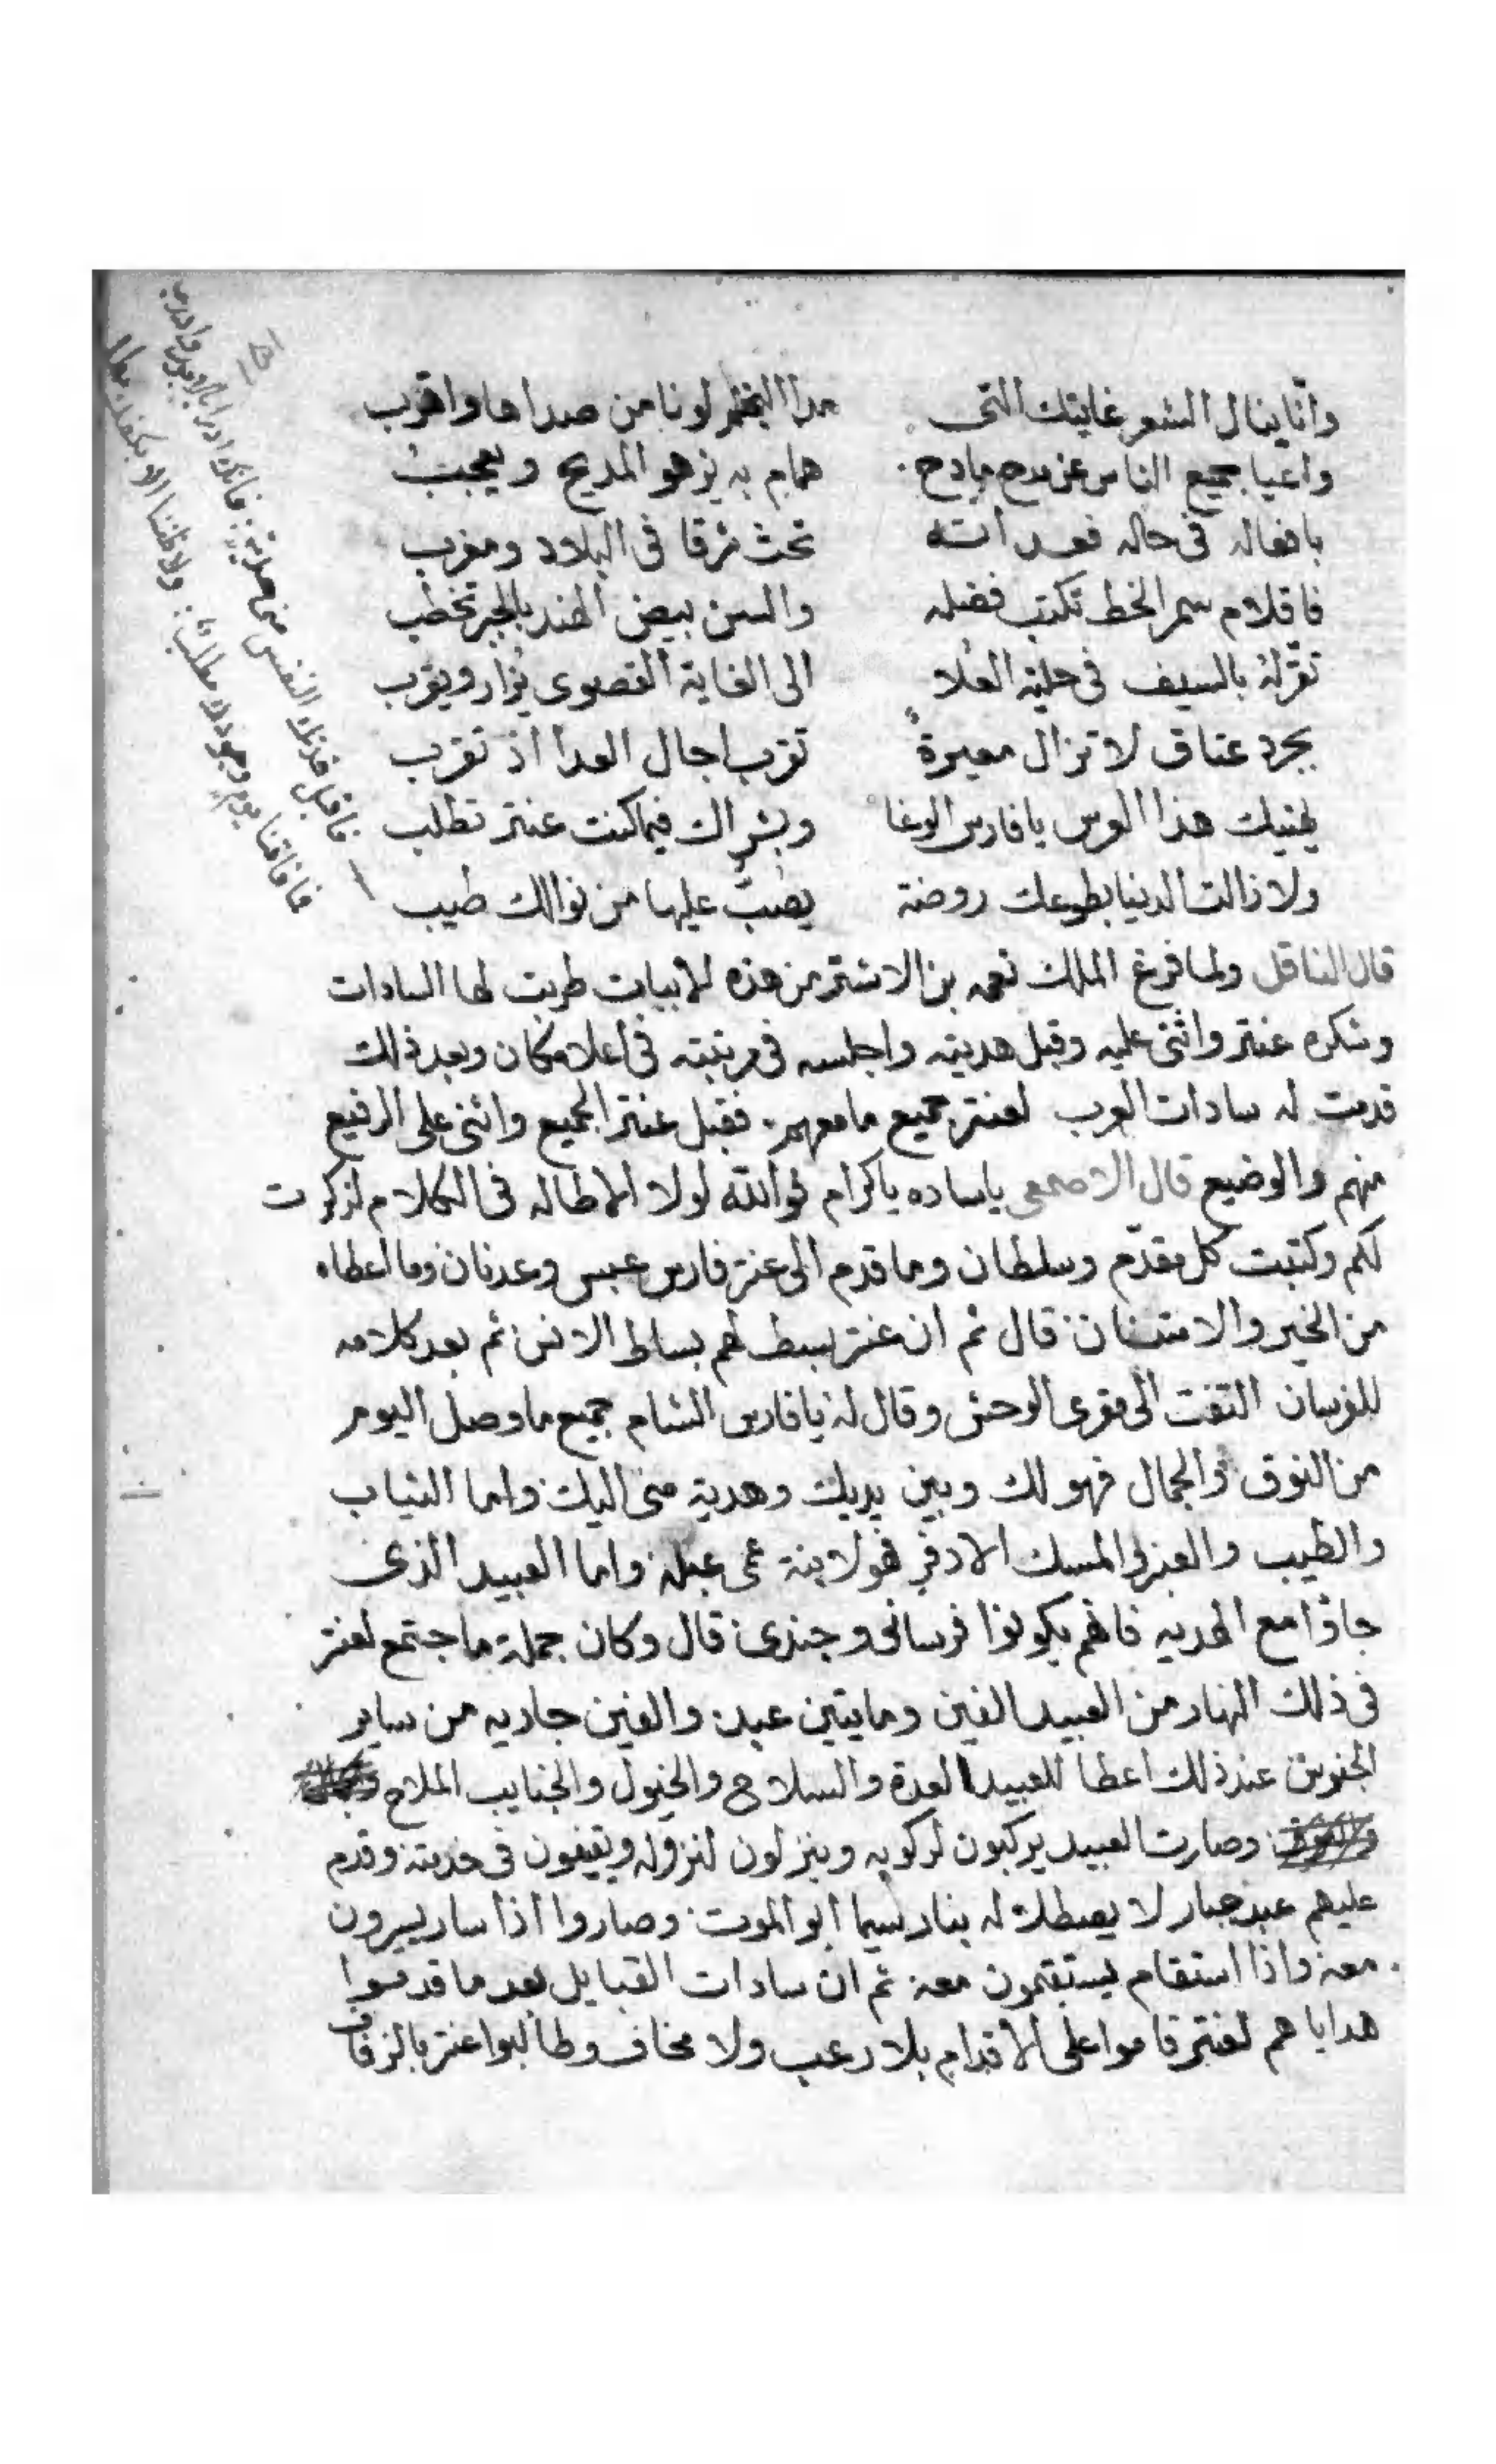 وانا ينال الشعر غايتك التى مدا النجم لونا من صداها واقرب
واعيا جميع الناس عن مدح مادح همام به يزهو المديح ويعجب
بافعاله فى حاله تحث شرقا فى البلاد ومغرب
فاقلام سمر الخط تكتب فضله والسن بيض الهند بالحبر تخطب
تقرله بالسيف فى حلبة العلا الى الغاية القصوى يزار ويقرب
بجرد عتاق لا تزال مغيرة تقرب اجال العدا اذ تقرب
يهنيك هذا العرس يا فارس الوغا وبشراك فيما كنت عنتر تطلب
ولا زالت الدنيا بطوعك روضة يصب عليها من نوالك طيب
فاقبل فدتك النفس منى هدية
فا فاقنا يوم وجودك مطلب
قال الناقل ولما فرغ الملك نعمه بن الاشتر من هذه الابيات طربت لها السادات
وشكره عنتر واثنى عليه وقبل هديته واجلسه فى مرتبته فى اعلا مكان وبعد ذلك
قدمت له سادات العرب لعنتر جميع ما معهم . فقبل عنتر الجميع واثنى على الرفيع
منهم والوضيع قال الاصمعى ياساده ياكرام فوالله لولا الاطاله فى الكلام لذكرت
لكم وكتبت كل مقدّم وسلطان وما قدم الى عنتر فارس عبس وعدنان وما اعطاه
من الخير والامتنان قال ثم ان عنتر بسط لهم بساط الانس ثم بعد كلامه
للفرسان التفت الى مقرى الوحش وقال له يا فارس الشام جميع ما وصل اليوم
من النوق والجمال فهو لك وبين يديك وهدية منى اليك واما الثياب
والطيب والعنبر والمسك الادفر فهو لابنة عمى عبلة واما العبيد الذى
جاؤا مع الهديه فانهم يكونوا فرسانى وجندى قال وكان جملة ما جتمع لعنتر
فى ذلك النهار من العبيد الفين ومايتين عبد والفين جاريه من ساير
الجنوس عند ذلك اعطا للعبيد العدة والسلاح والخيول والجنايب الملاح
وصارت العبيد يركبون لركوبه وينزلون لنزوله ويقيفون فى خدمته وقدم
عليهم عبد جبار لا يصطلا له بنار يسما ابو الموت وصاروا اذا سار يسيرون
معه واذا استقام يستقيمون معه ثم ان سادات القبايل بعد ما قدموا
هداياهم لعنتر قاموا على الأقدام بلا رعب ولا مخاف وطالبوا عنتر بالزفاف